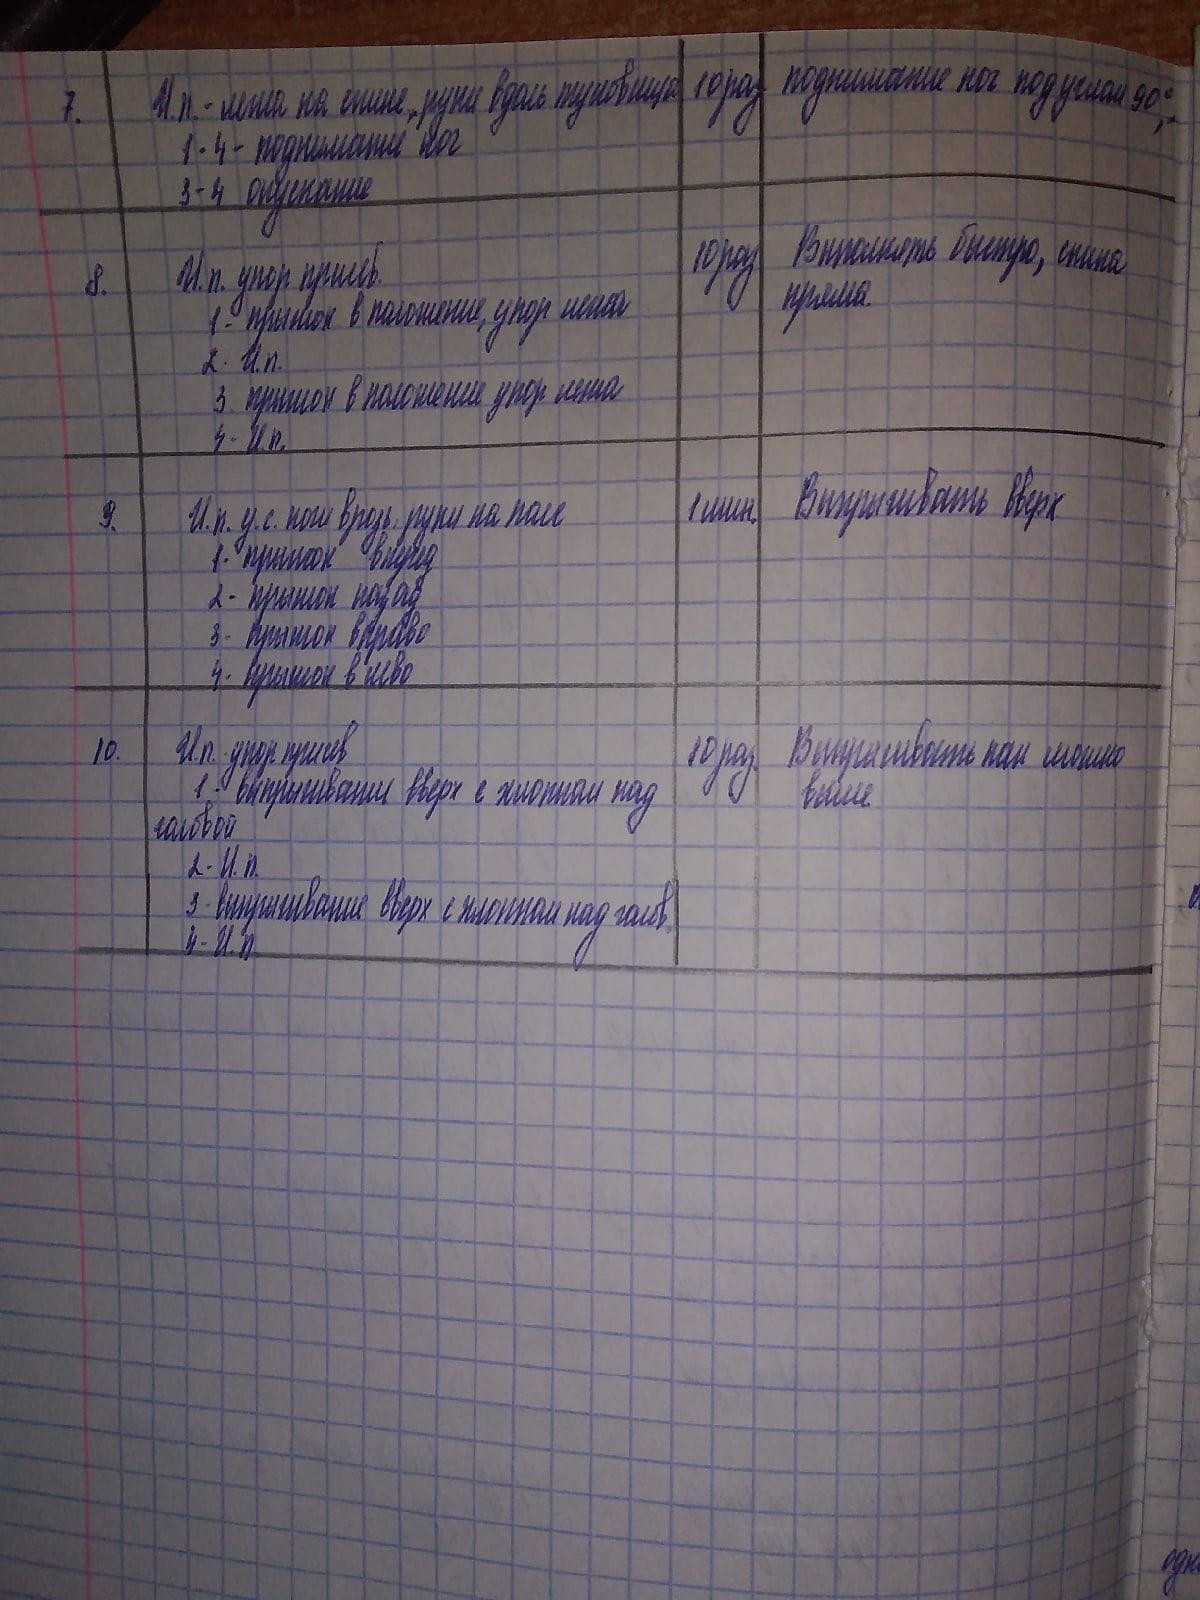 7. И.п. - лежа на спине, руки вдоль туловища 10 раз поднимание ног под углом 90°
1-4- поднимание ног
3-4 опускание
8. И.п. упор присев. 10 раз Выполнять быстро, спина
прямая.
1- прыжок в положение, упор лежа
2- И.п.
3. прыжок в положение упор лежа
4- И.п.
9. И.п. у.с. ноги врозь. руки на пояс 1 мин. Выпрыгивать вверх
1- прыжок вперед
2- прыжок назад
3- прыжок вправо
4- прыжок в лево
10. И.п. упор присев 10 раз Выпрыгивать как можно
1- выпрыгивание вверх с хлопком над выше
головой
2- И.п.
3- выпрыгивание вверх с хлопком над голов.
4- И.п.